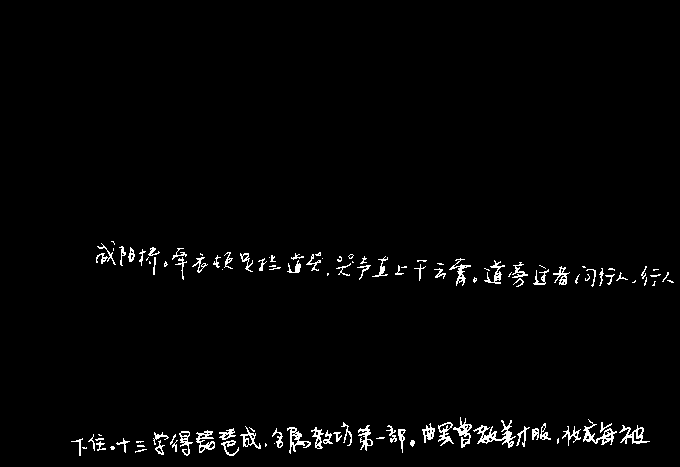 咸阳桥。牵衣顿足拦道哭，哭声直上干云霄。道旁过者问行人，行人
下住。十三学得琵琶成，名属教坊第一部。曲罢曾教善才服，妆成每被